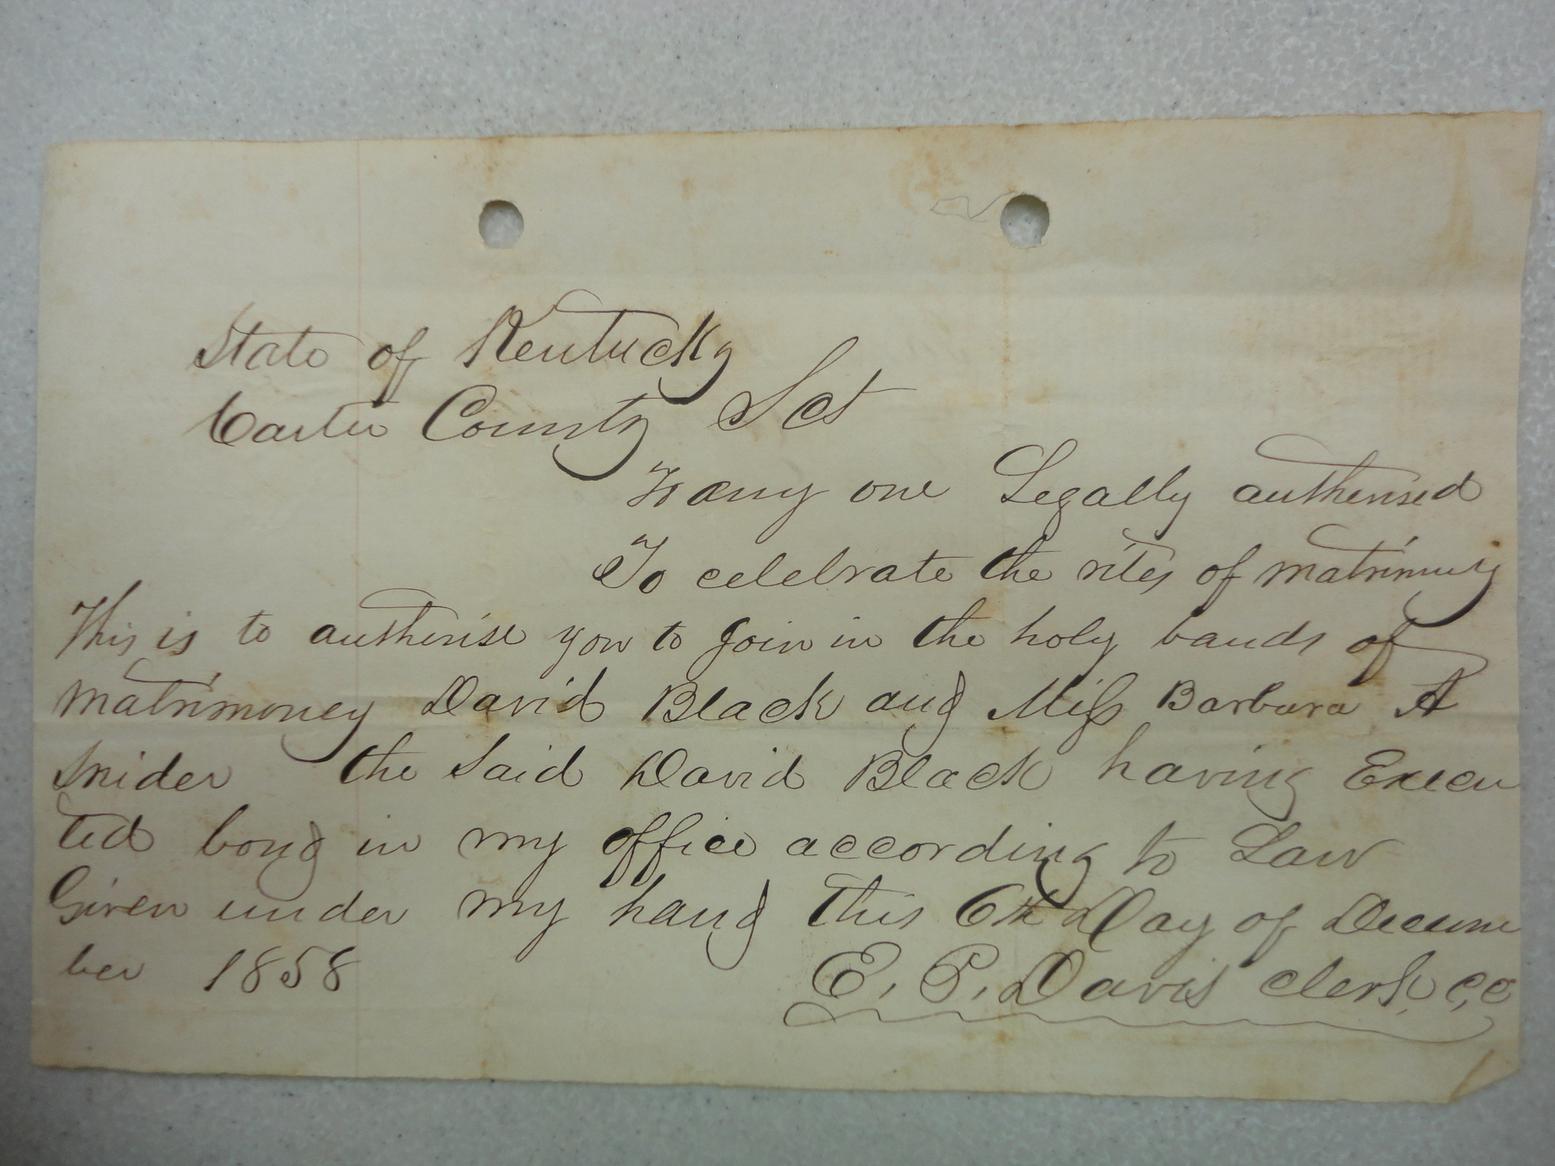 State of Kentucky
Carter County Sct
To any one Legally authorised
To celebrate the rites of matrimony
This is to authorise you to Join in the holy bands of
matrimoney David Black and Miss Barbara A
Snider the Said David Black having Execu
ted bond in my office according to Law
Given under my hand this 6th Day of Decem
ber 1858 E. P. Davis clerk, c,c